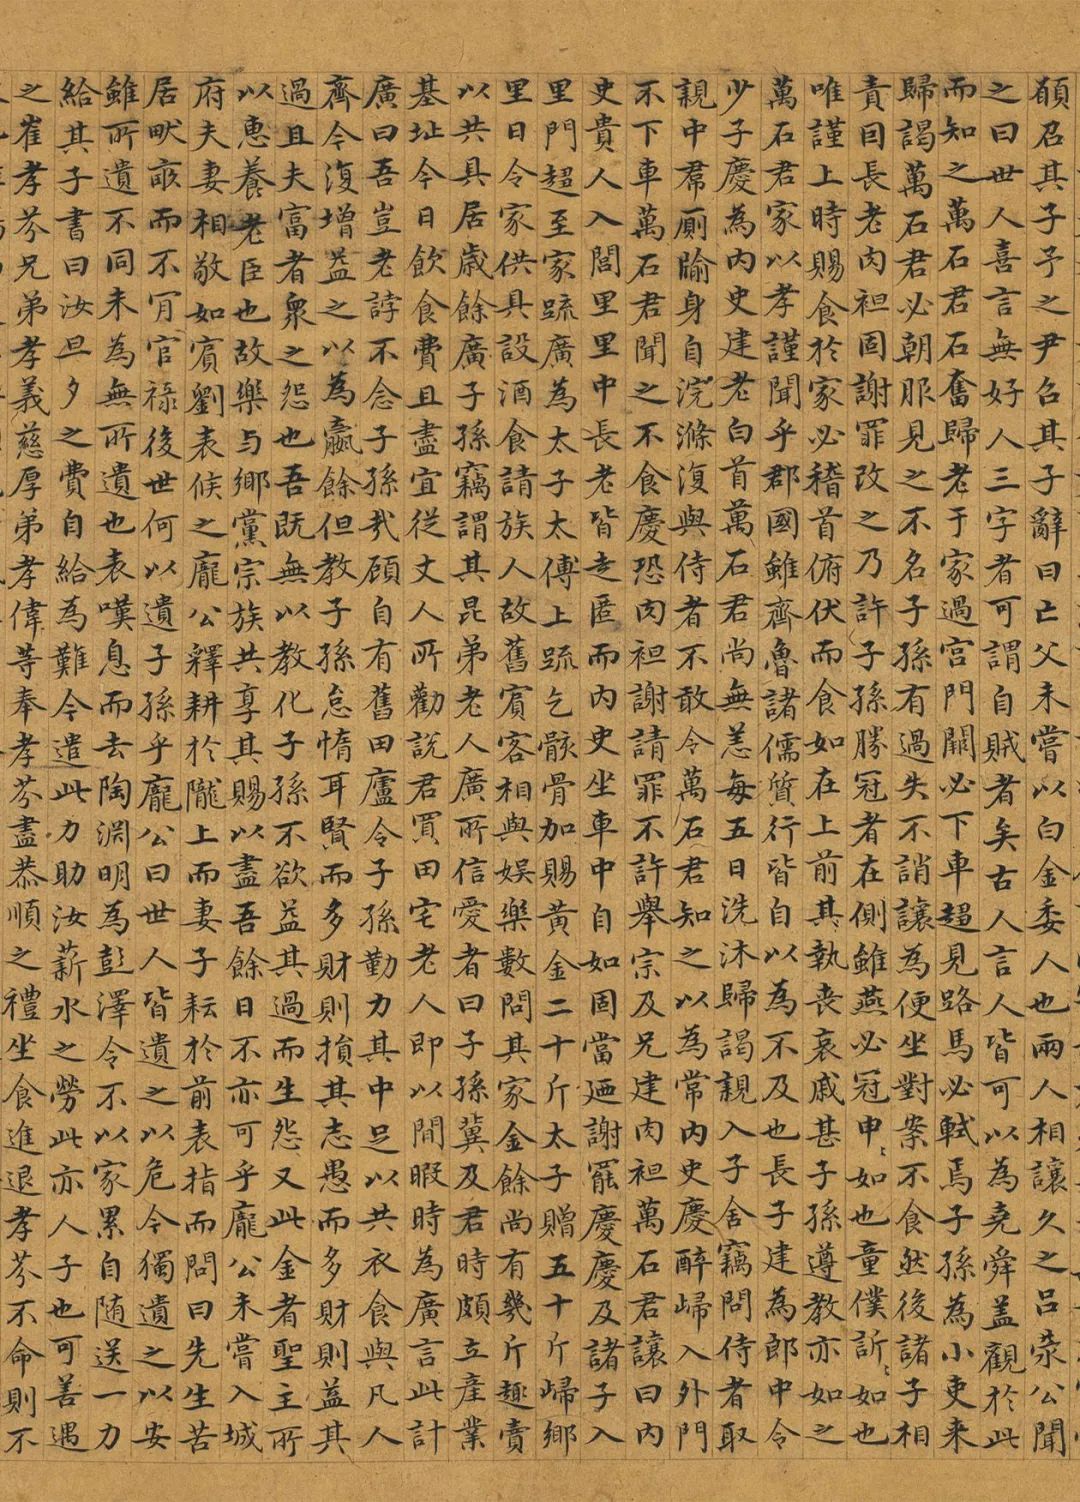 願召其子予之尹召其子辭曰亡父未嘗以白金委人也兩人相讓久之呂滎公聞
之曰世人喜言無好人三字者可謂自賊者矣古人言人皆可以為堯舜盖觀於此
而知之萬石君石奮歸老于家過宮門闕必下車趨見路馬必軾焉子孫為小吏来
歸謁萬石君必朝服見之不名子孫有過失不誚讓為便坐對案不食然後諸子相
責因長老肉袒固謝罪改之乃許子孫勝冠者在側雖燕必冠申申如也童僕訢訢如也
唯謹上時賜食於家必稽首俯伏而食如在上前其執喪哀戚甚子孫遵教亦如之
萬石君家以孝謹聞乎郡國雖齊魯諸儒質行皆自以為不及也長子建為郎中令
少子慶為內史建老白首萬石君尚無恙每五日洗沐歸謁親入子舍竊問侍者取
親中帬廁牏身自浣滌復與侍者不敢令萬石君知之以為常內史慶醉歸入外門
不下車萬石君聞之不食慶恐肉袒謝請罪不許舉宗及兄建肉袒萬石君讓曰內
史貴人入閭里里中長老皆走匿而內史坐車中自如固當廼謝罷慶慶及諸子入
里門趨至家䟽廣為太子太傅上䟽乞骸骨加賜黃金二十斤太子贈五十斤歸鄉
里日令家供具設酒食請族人故舊賓客相與娛樂數問其家金餘尚有幾斤趣賣
以共具居歲餘廣子孫竊謂其昆弟老人廣所信愛者曰子孫冀及君時頗立產業
基址今日飲食費且盡宜從丈人所勸說君買田宅老人即以閒暇時為廣言此計
廣曰吾豈老誖不念子孫㢤顧自有舊田廬令子孫勤力其中足以共衣食與凡人
齊今復增益之以為贏餘但教子孫怠惰耳賢而多財則損其志愚而多財則益其
過且夫富者衆之怨也吾既無以教化子孫不欲益其過而生怨又此金者聖主所
以惠養老臣也故樂与鄉黨宗族共享其賜以盡吾餘日不亦可乎龐公未嘗入城
府夫妻相敬如賓劉表候之龐公釋耕於隴上而妻子耘於前表指而問曰先生苦
居畎畝而不肎官祿後世何以遺子孫乎龐公曰世人皆遺之以危今獨遺之以安
雖所遺不同未為無所遺也表嘆息而去陶淵明為彭澤令不以家累自随送一力
給其子書曰汝旦夕之費自給為難今遣此力助汝薪水之勞此亦人子也可善遇
之崔孝芬兄弟孝義慈厚弟孝偉等奉孝芬盡恭順之禮坐食進退孝芬不命則不